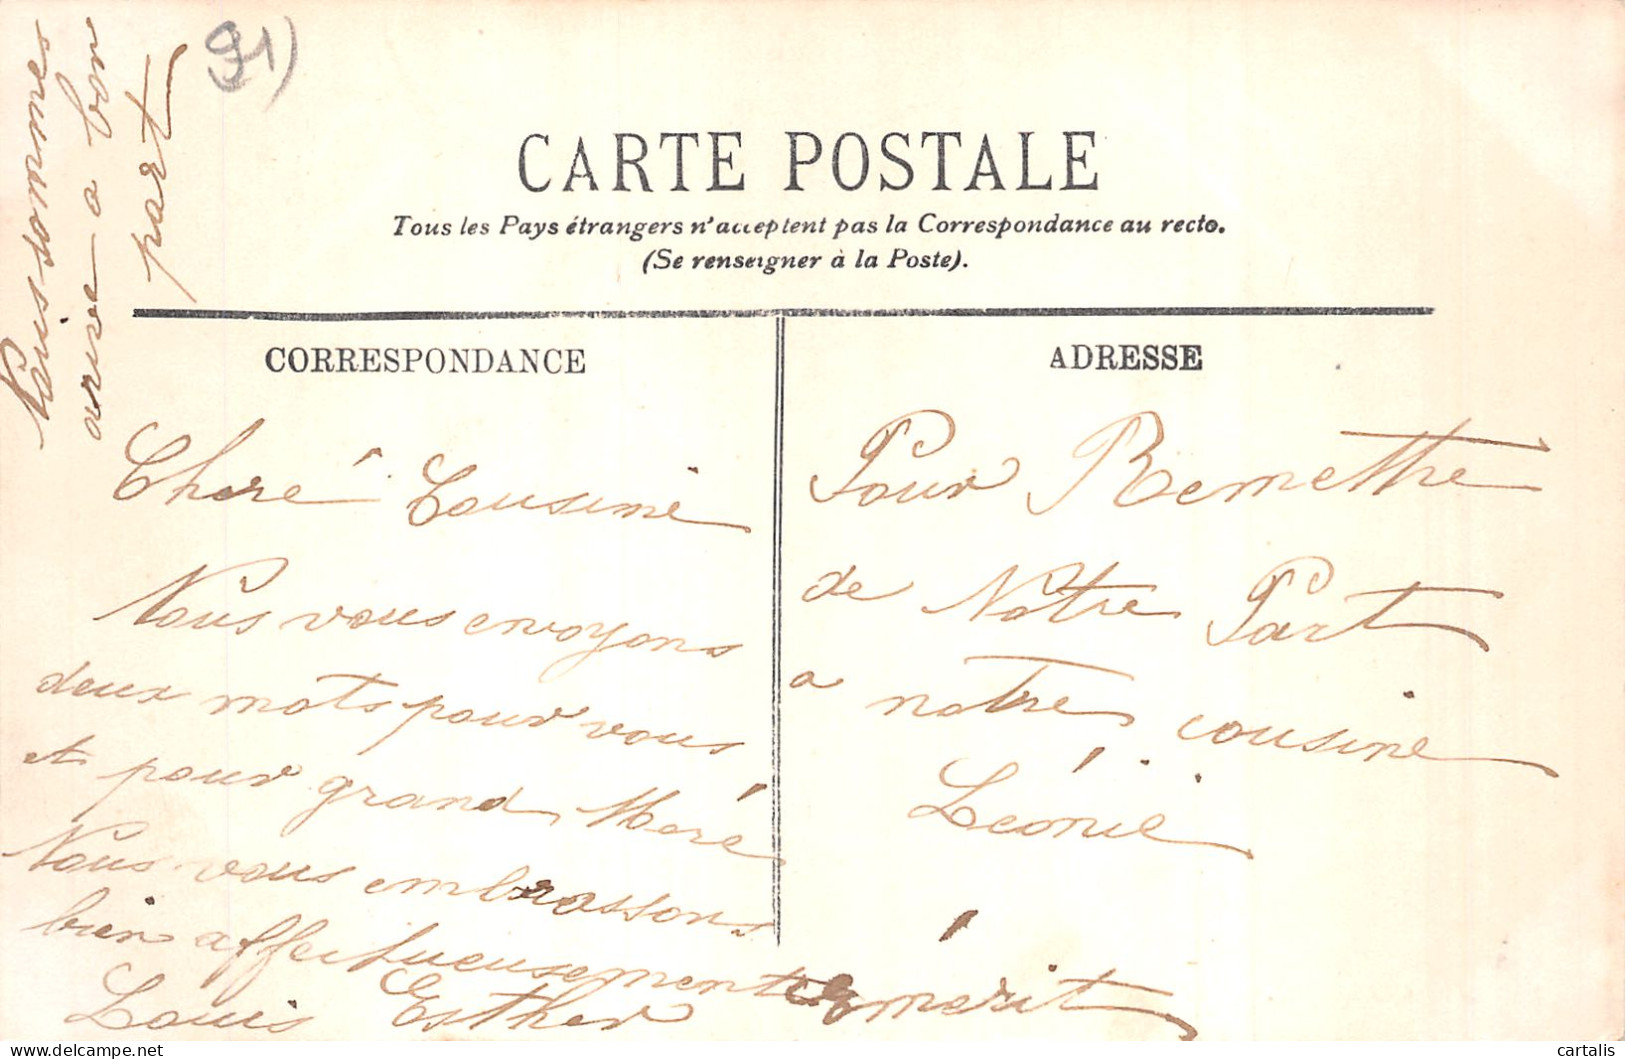 91)
Nous sommes
arive a bon
part
CARTE POSTALE
Tous les Pays étrangers n'acceptent pas la Correspondance au recto.
(Se renseigner à la Poste).
CORRESPONDANCE
Cheré Cousine
Nous vous envoyons
deux mots pour vous
et pour grand Meré
Nous vous embrassons
bien affectueusement
Louis Esther émerit
ADRESSE
Pour Remettre
de Notre Part
a notre cousine
Léonie
cartalis